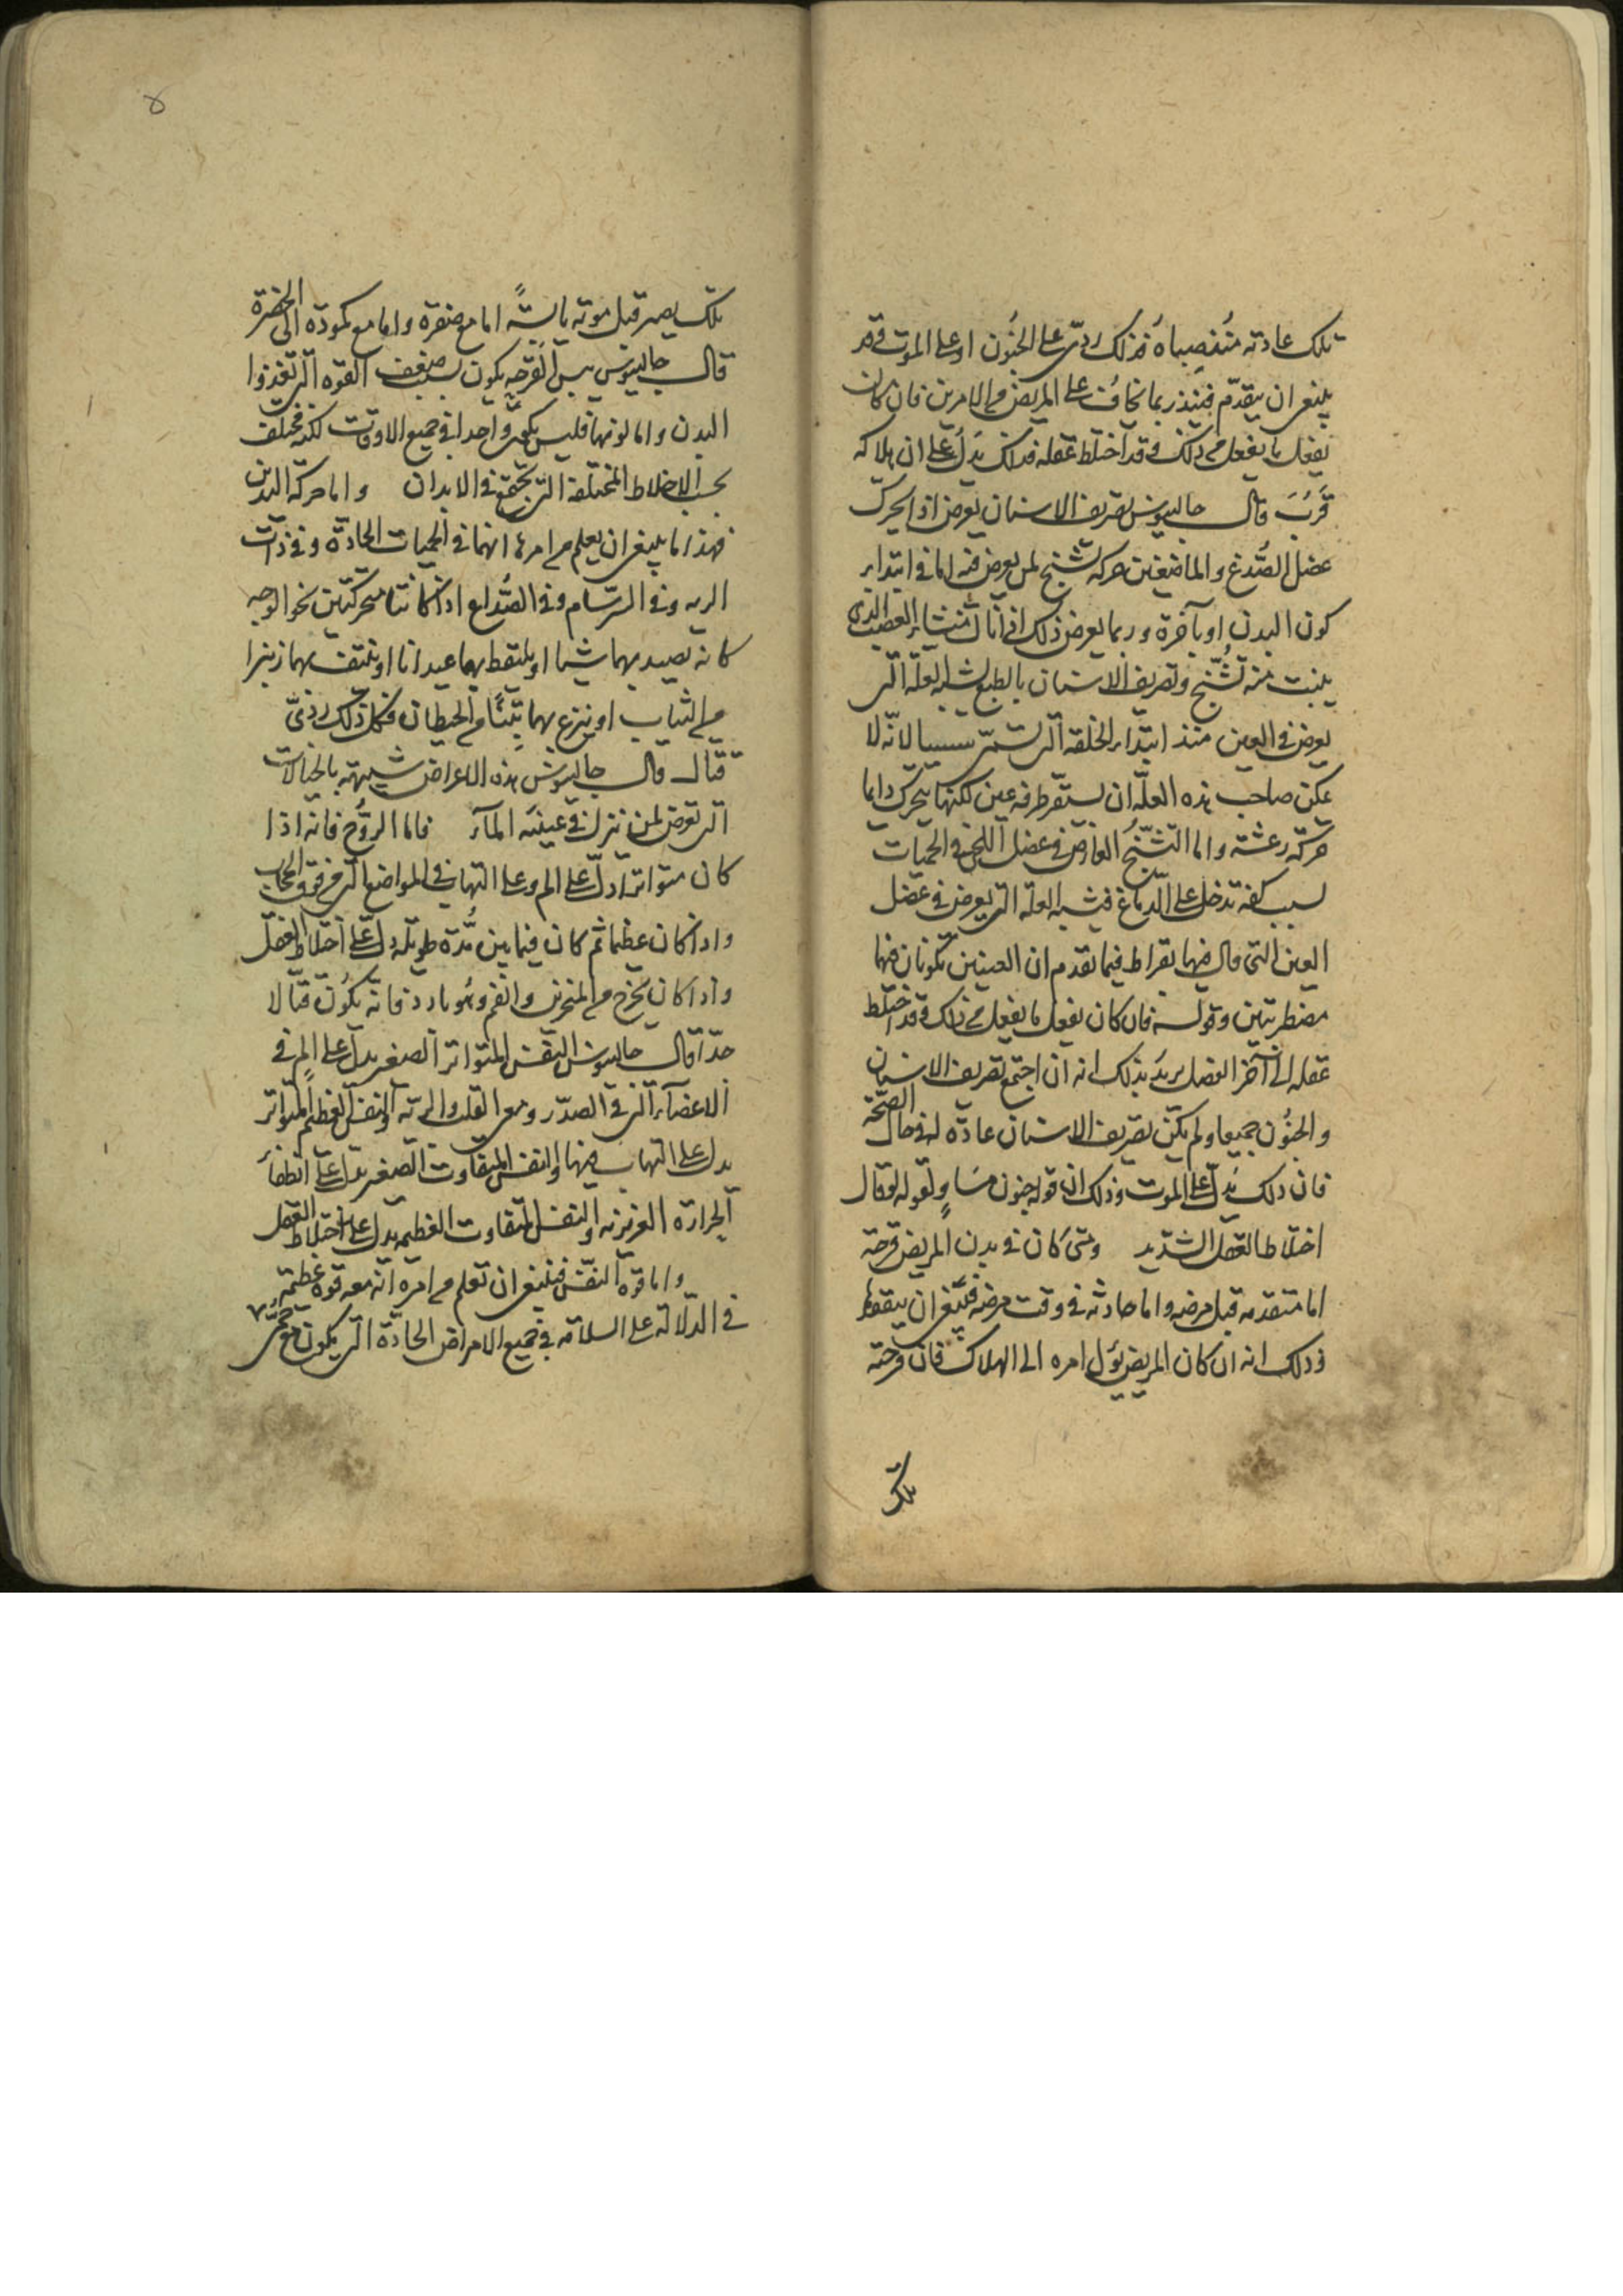 تلك عادته منذ صباه فذلك ردى على الجنون او على الموت وقد
ينبغى ان يتقدم فينذر بما يخاف على المريض من الامرين فان كان
يفعل ما يفعل من ذلك وقد اختلط عقله فذلك يدل على ان هلاكه
قرب قال جالينوس تصريف الاسنان يعرض اذا تحرك
عضل الصدغ والماضغين حركة تشنج لمن يعرض فيه اما فى ابتداء
كون البدن او بآخره وربما يعرض ذلك اذا نال منشا العصب الذى
ينبت منه تشنج وتصريف الاسنان بالطبع يشبه العلة التى
يعرض فى العين منذ ابتداء الخلقة التى تسمى لانه لا
يمكن صاحب هذه العلة ان يستقر طرفة عين لكنها يتحرك دايما
حركة رعشة واما التشنج العارض فى عضل اللحى فى الحميات
بسبب كفة تدخل على الدماغ فيشبه العلة التى يعرض فى عضل
العين التى قال فيها بقراط فيما تقدم ان العينين تكونان فيها
مضطربتين وقوله فان كان يفعل ما يفعل من ذلك وقد اختلط
عقله الى آخر الفصل يريد بذلك انه ان اجتمع تصريف الاسنان
والجنون جميعا ولم يكن تصريف الاسنان عادة له فى حال الصحة
فان ذلك يدل على الموت وذلك ان قوله جنون مساو لقوله لو قال
اختلاط العقل الشديد ومتى كان فى بدن المريض قرحة
اما متقدمة قبل مرضه واما حادثة فى وقت مرضه فينبغى ان يتفقدها
وذلك انه ان كان المريض يؤل امره الى الهلاك فان قرحته
تلك
٥
تلك يصير قبل موته يابسة اما مع صفرة واما مع كمودة الى الخضرة
قال جالينوس يبس القرحة يكون بسبب ضعف القوة التى تغذوا
البدن واما لونها فليس يكون واحدا فى جميع الاوقات لكنه مختلف
بحسب الاخلاط المختلفة التى تجتمع فى الابدان واما حركة اليدين
فهذا ما ينبغى ان يعلم من امرها انهما فى الحميات الحادة وفى ذات
الرية وفى السرسام وفى الصداع اذا كانتا متحركتين نحو الوجه
كانه يصيد بهما شيا او يلتقط بهما عيدانا او ينتف بهما زئبرا
من الثياب او ينزع بهما تبنا من الحيطان فكل ذلك ردى
قتال قال جالينوس هذه الاعراض شبيهة بالخيالات
التى تعرض لمن نزل فى عينيه الماء فاما الروح فانه اذا
كان متواترا دل على الم وعلى التهاب فى المواضع التى فوق الحجاب
واذا كان عظيما ثم كان فيما بين مدة طويلة دل على اختلاط العقل
واذا كان يخرج من المنخرين والفم وهو بارد فانه يكون قتالا
جدا قال جالينوس النفس المتواتر الصغير يدل على الم فى
الاعضاء التى فى الصدر ومعى القلب والرية والنفس العظيم المتواتر
يدل على التهاب فيها والنفس المتفاوت الصغير يدل على انطفاء
الحرارة الغريزية والنفس المتفاوت العظيم يدل على اختلاط العقل
واما قوة النفس فينبغى ان تعلم من امره انه معه قوة عظيمة
فى الدلالة على السلامة فى جميع الامراض الحادة التى يكون مع حمى